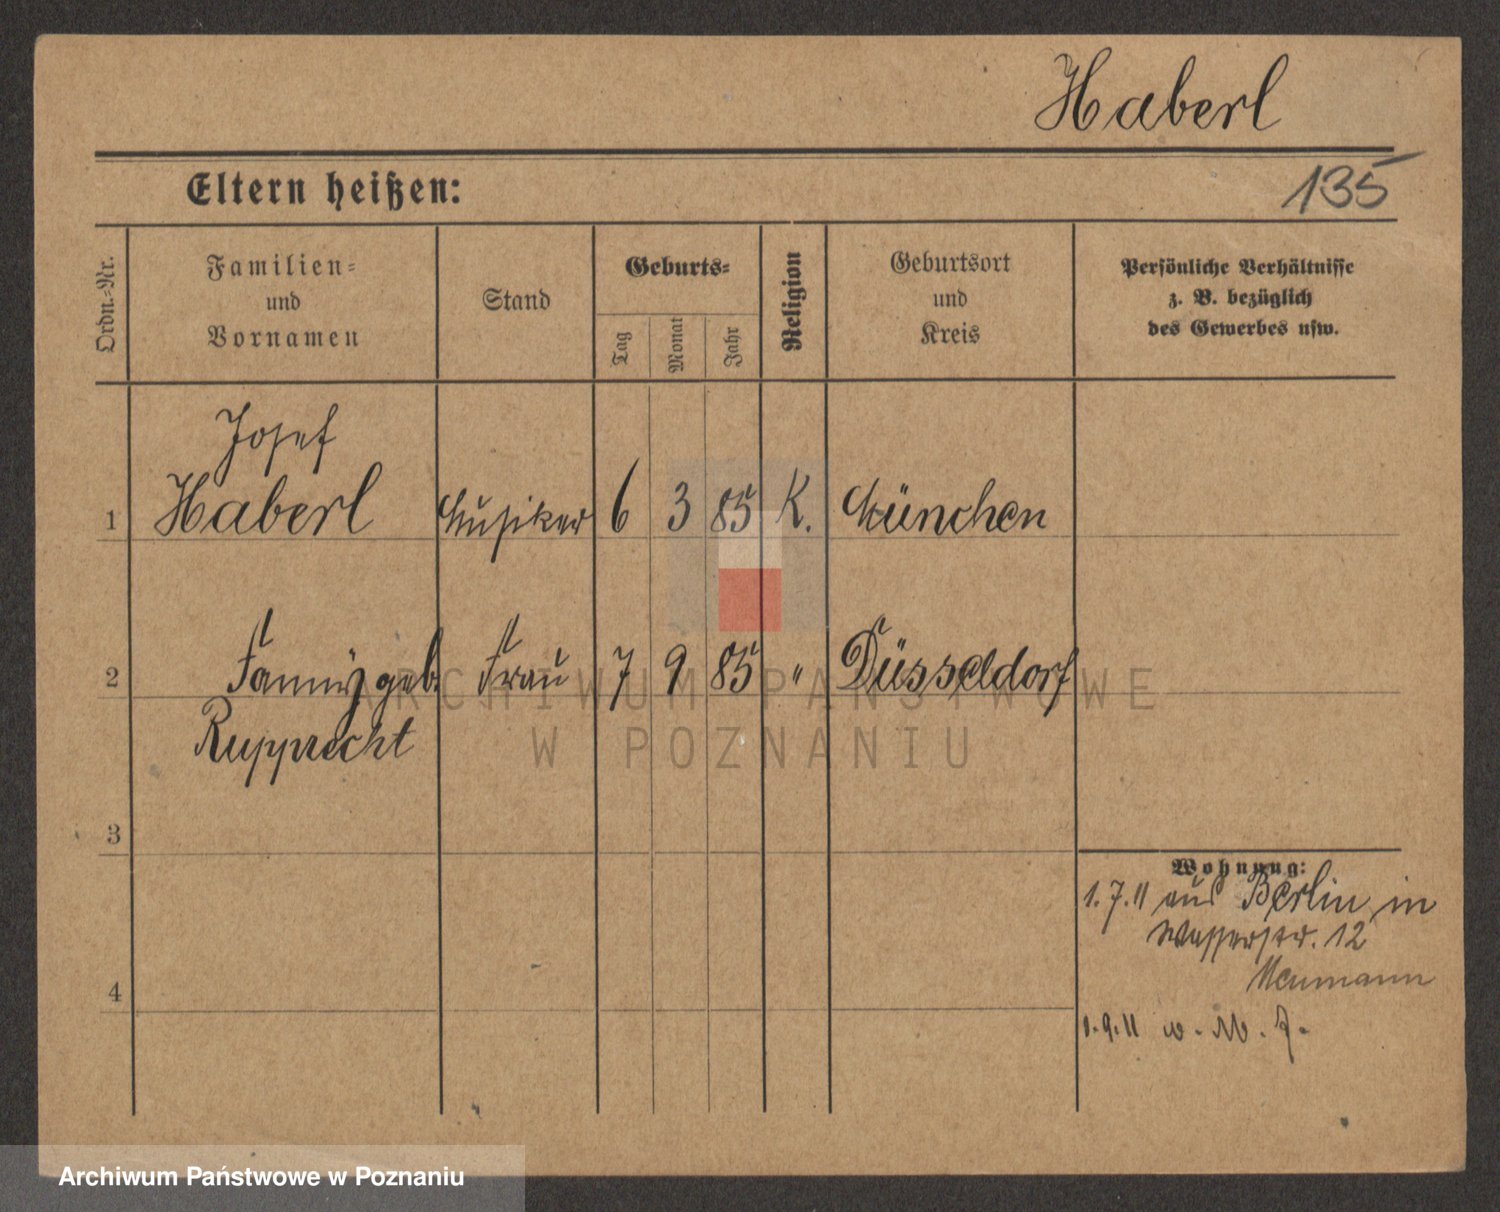 Haberl
Eltern heißen:
135
Ordn.-Nr.
Familien-
und
Vornamen
Stand
Geburts-
Tag
Monat
Jahr
Religion
Geburtsort
und
Kreis
Persönliche Verhältnisse
z. B. bezüglich
des Gewerbes usw.
Josef
1 Haberl Musiker 6 3 85 K. München
2 Fanny geb. Frau 7 9 85 " Düsseldorf
Rupprecht
ARCHIWUM PAŃSTWOWE
W POZNANIU
3
Wohnung:
1.7.11 aus Berlin in
Wasserstr. 12
Neumann
4
1.9.11
Archiwum Państwowe w Poznaniu